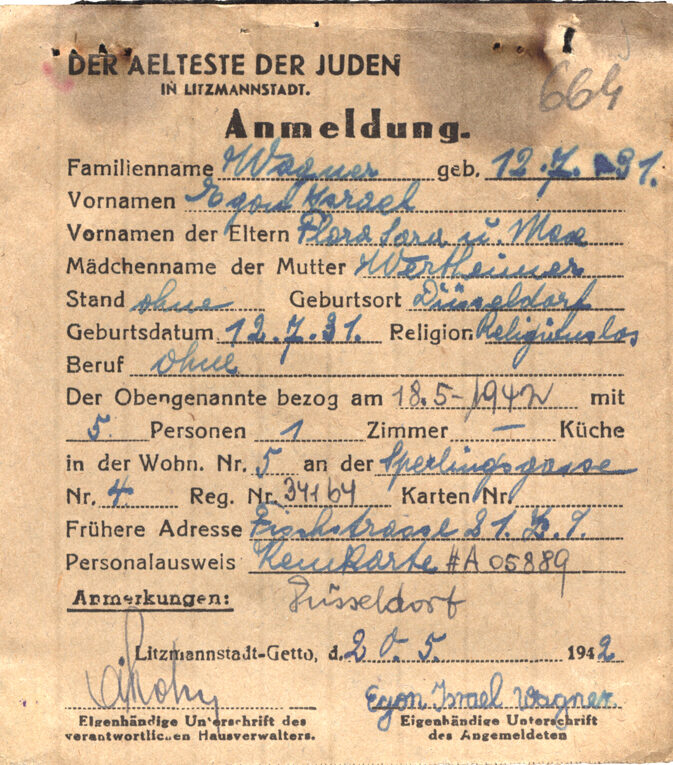 DER AELTESTE DER JUDEN
IN LITZMANNSTADT.
664
Anmeldung.
Familienname Wagner geb. 12.7.31.
Vornamen Egon Israel
Vornamen der Eltern Flora Sara u. Max
Mädchenname der Mutter Wertheimer
Stand ohne Geburtsort Düsseldorf
Geburtsdatum 12.7.31. Religion Religionslos
Beruf ohne
Der Obengenannte bezog am 18.5-1942 mit
5. Personen 1 Zimmer — Küche
in der Wohn. Nr. 5 an der Sperlingsgasse
Nr. 4 Reg. Nr. 34164 Karten Nr.
Frühere Adresse Fischstrasse 21. Z. 7.
Personalausweis Kennkarte #A 05889
Anmerkungen: Düsseldorf
Litzmannstadt-Getto, d. 20.5. 1942
Egon Israel Wagner
Eigenhändige Unterschrift des verantwortlichen Hausverwalters.
Eigenhändige Unterschrift des Angemeldeten